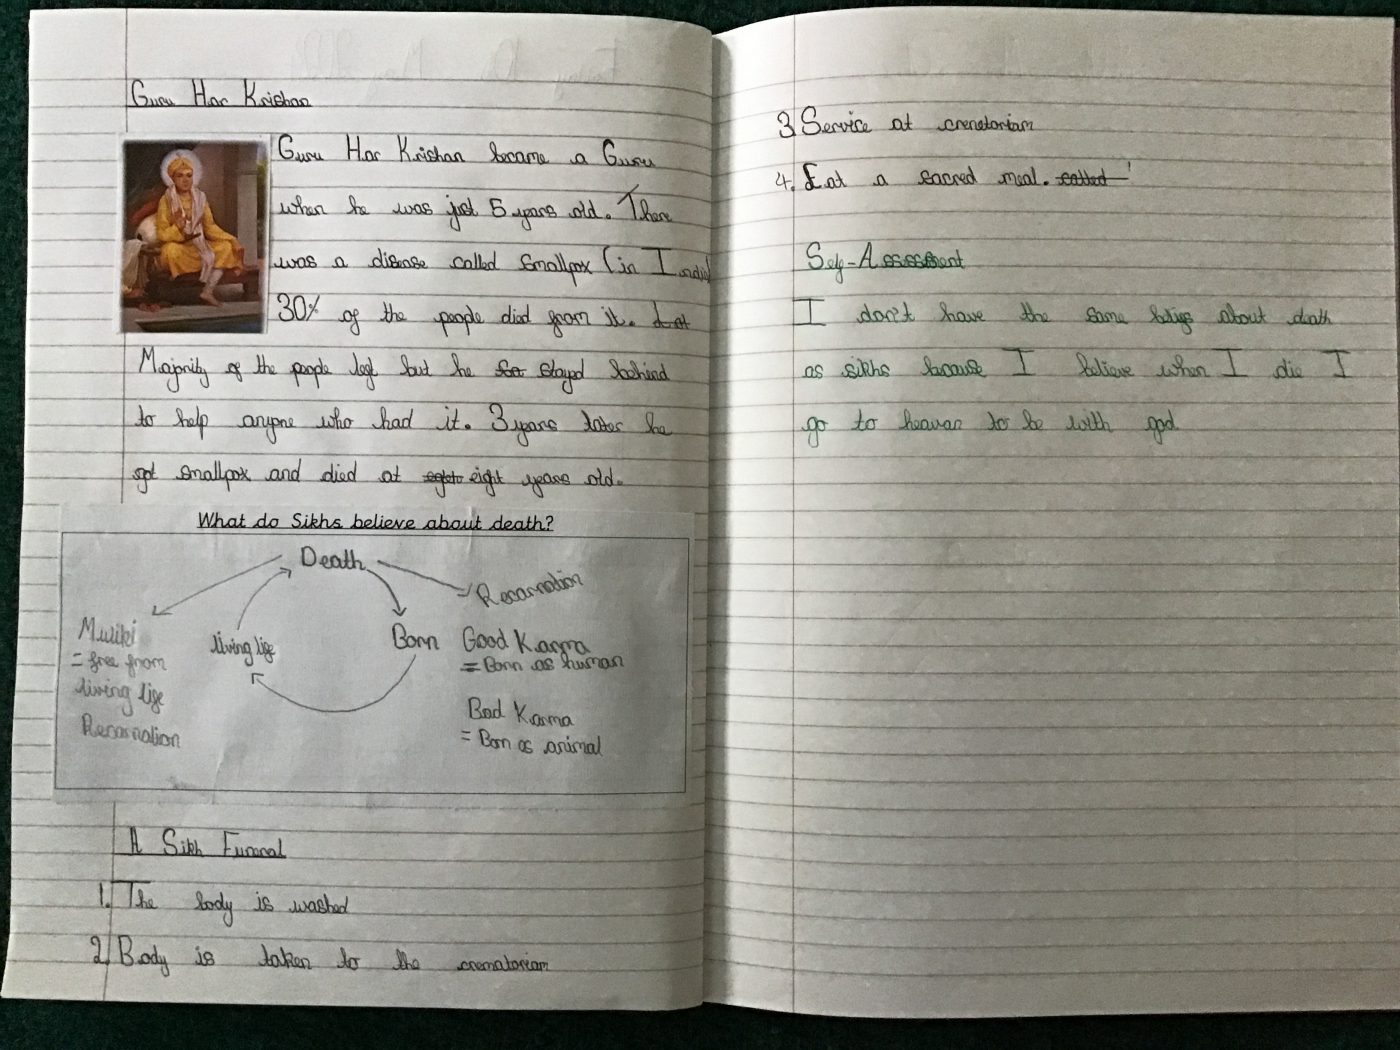 Guru Har Krishan
Guru Har Krishan became a Guru
when he was just 5 years old. There
was a disease called smallpox (in India)
30% of the people died from it.
Majority of the people left but he stayed behind
to help anyone who had it. 3 years later he
got smallpox and died at eight years old.
What do Sikhs believe about death?
Death
Recarnation
Muliki
= free from
living life
Recarnation
living life
Born
Good Karma
= Born as human
Bad Karma
= Born as animal
A Sikh Funeral
1. The body is washed
2. Body is taken to the crematoriam
3. Service at crematoriam
4. Eat a sacred meal. called
Self-Assessment
I don't have the same beliefs about death
as sikhs because I believe when I die I
go to heavan to be with god